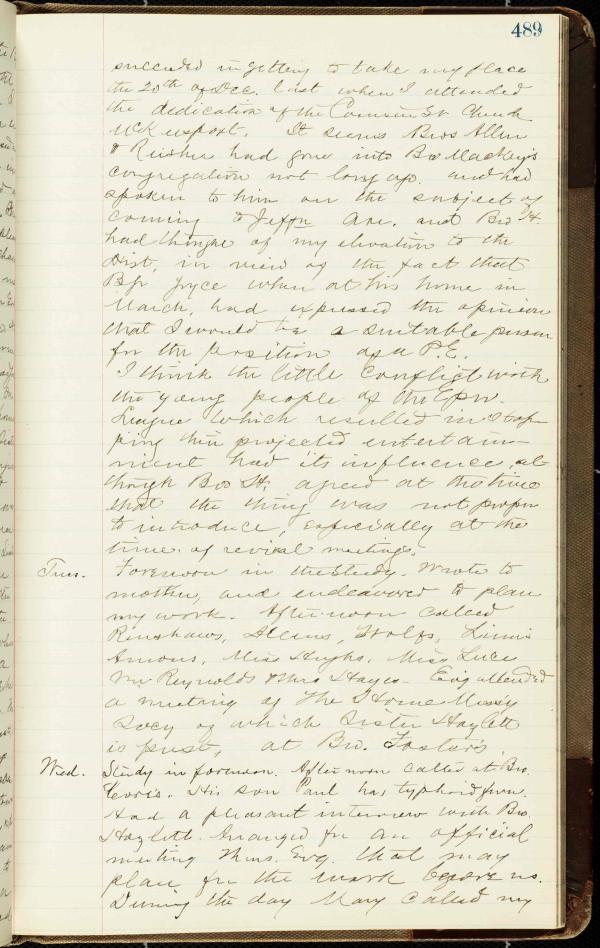 489
succeeded in getting to take my place
the 20th of Dec. last when I attended
the dedication of the Cousin St. Church
McKeesport. It seems Bros Allen
& Risher had gone into Bro Mackey's
congregation not long ago and had
spoken to him on the subject of
coming to Jeffn Ave. and Bro H.
had thought of my elevation to the
Dist. in view of the fact that
Bp Joyce when at his home in
March, had expressed the opinion
that I would be a suitable person
for the position of a P.E.
I think the little conflict with
the young people of the Epw.
League which resulted in stop-
ping their projected entertain-
ment had its influence, al-
though Bro H. agreed at the time
that the thing was not proper
to introduce, especially at the
time of revival meetings.
Tues. Forenoon in the study. Wrote to
mother, and endeavored to plan
my work. Afternoon called
Renshaws, Allens, Wolfs,
Amons, Miss Hughs, Miss Luce
Mr Reynolds & Mrs Hayes. Evg attended
a meeting of the Home Miss'y
Socy of which Sister Hazlett
is prest, at Bro. Foster's.
Wed. Study in forenoon. Afternoon called at Bro.
His son Paul has typhoid fever.
Had a pleasant interview with Bro.
Hazlett. Arranged for an official
meeting Thurs. Evg. that may
plan for the work before us.
During the day Mary called my